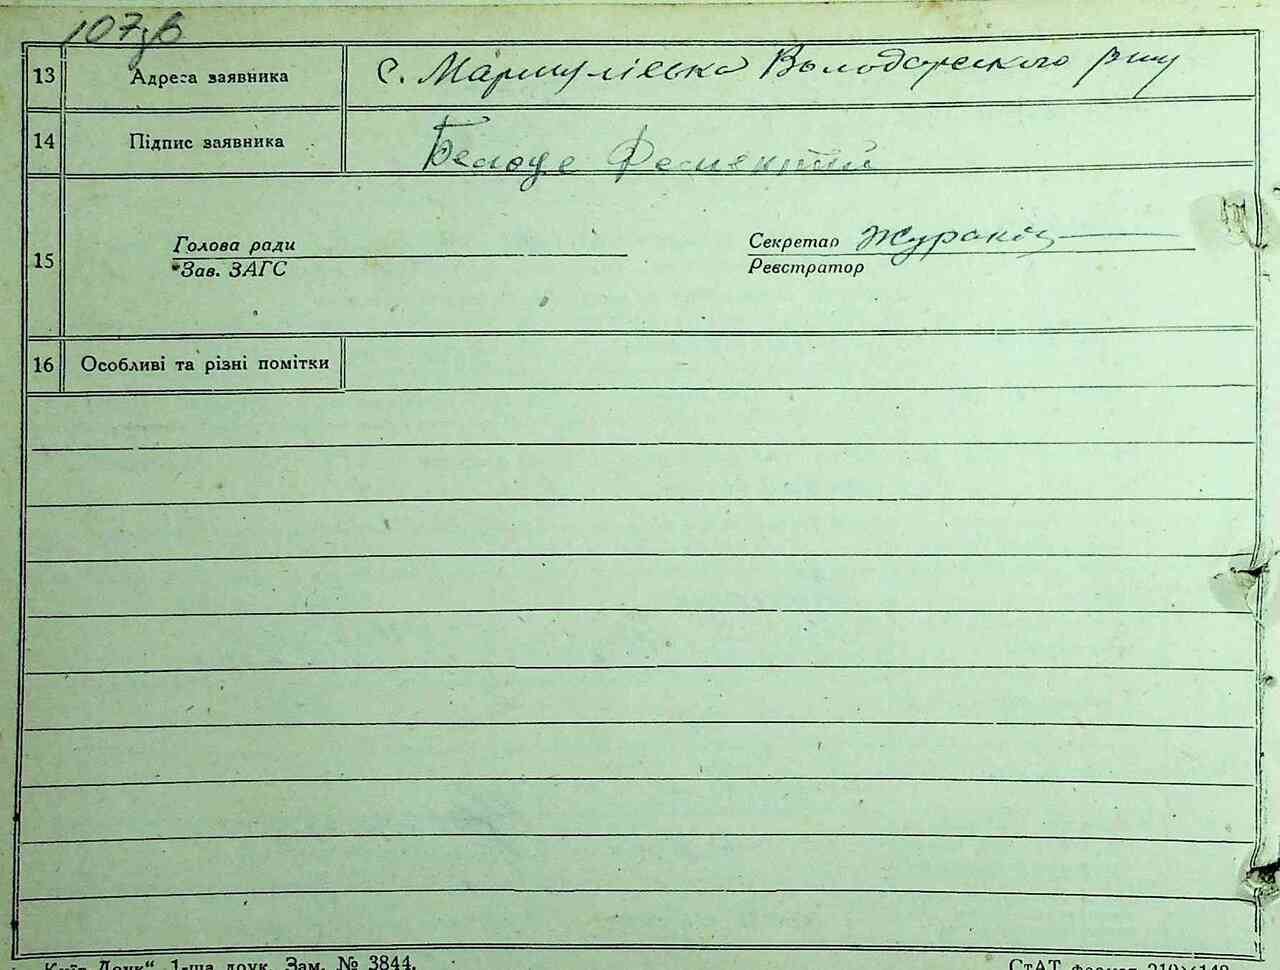 107зв
13 Адреса заявника С. Мармуліївка Володарського р-ну
14 Підпис заявника
Голова ради Секретар
15
Зав. ЗАГС Реєстратор
16 Особливі та різні помітки
„Київ Друк“ 1-ша друк. Зам. № 3844. СтАТ формат 210×148